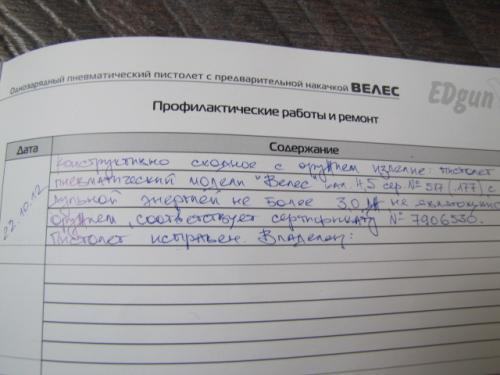 Однозарядный пневматический пистолет с предварительной накачкой ВЕЛЕС
EDgun
Профилактические работы и ремонт
Дата Содержание
22.10.12 Конструктивно сходное с оружием изделие: пистолет
пневматический модели "Велес" кал. 4,5 сер. № 517 (177) с
дульной энергией не более 3,0 Дж не являющийся
оружием, соответствует сертификату № 7906530.
Пистолет исправен. Владелец: